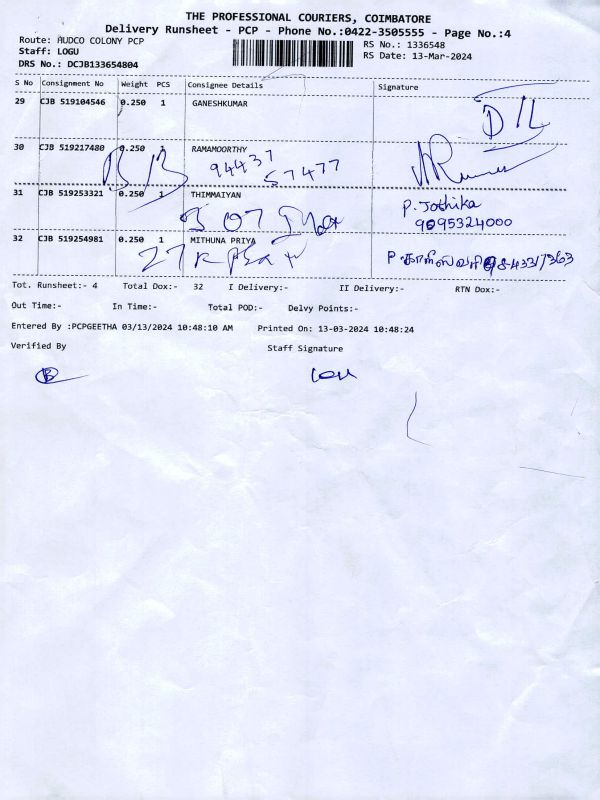 THE PROFESSIONAL COURIERS, COIMBATORE
Delivery Runsheet - PCP - Phone No.:0422-3505555 - Page No.:4
Route: AUDCO COLONY PCP
RS No.: 1336548
Staff: LOGU
RS Date: 13-Mar-2024
DRS No.: DCJB133654804
S No Consignment No Weight PCS Consignee Details Signature
29 CJB 519104546 0.250 1 GANESHKUMAR
30 CJB 519217480 0.250 1 RAMAMOORTHY
94437
57477
31 CJB 519253321 0.250 1 THIMMAIYAN
P. Jothika
9095324000
32 CJB 519254981 0.250 1 MITHUNA PRIYA
27
Tot. Runsheet:- 4 Total Dox:- 32 I Delivery:- II Delivery:- RTN Dox:-
Out Time:- In Time:- Total POD:- Delvy Points:-
Entered By :PCPGEETHA 03/13/2024 10:48:10 AM Printed On: 13-03-2024 10:48:24
Verified By Staff Signature